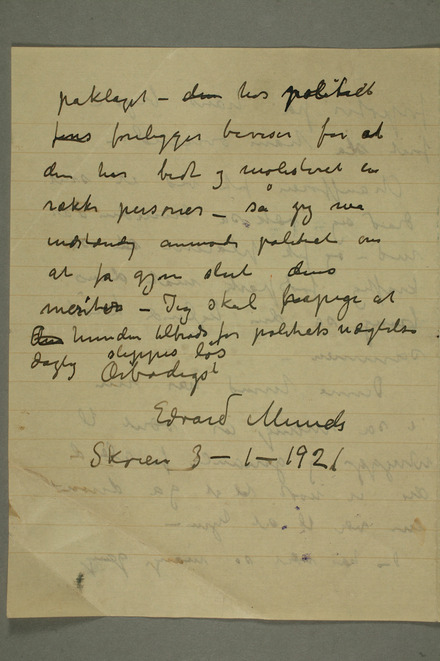 paklaget – den hos politiet
fens foreligger beviser for at
den har bidt og molesteret en
række personer – så jeg må
indstændig anmode politiet om
at få gjøre slut dens
meriter – Jeg skal påpege at
den hunden tiltrods for politiets nægtelse
daglig slippes løs
Ærbødigst
Edvard Munch
Skøien 3–1–1921